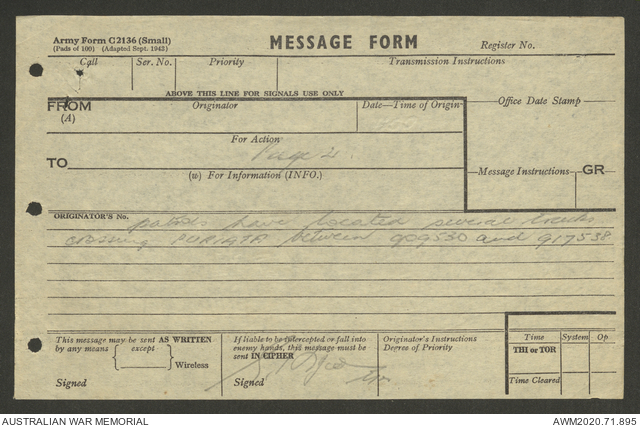 Army Form C2136 (Small)
(Pads of 100) (Adapted Sept. 1942)
MESSAGE FORM
Register No.
Call
Ser. No.
Priority
Transmission Instructions
ABOVE THIS LINE FOR SIGNALS USE ONLY
FROM
(A)
Originator
Date—Time of Origin
Office Date Stamp
For Action
Page 2.
TO
(w) For Information (INFO.)
Message Instructions
GR
ORIGINATOR'S No.
patrols have located several tracks
crossing PURIATA between 909530 and 917538
This message may be sent AS WRITTEN
by any means except
Wireless
Signed
If liable to be intercepted or fall into
enemy hands, this message must be
sent IN CIPHER
Signed
Originator's Instructions
Degree of Priority
Time
System
Op
THI or TOR
Time Cleared
AUSTRALIAN WAR MEMORIAL
AWM2020.71.895